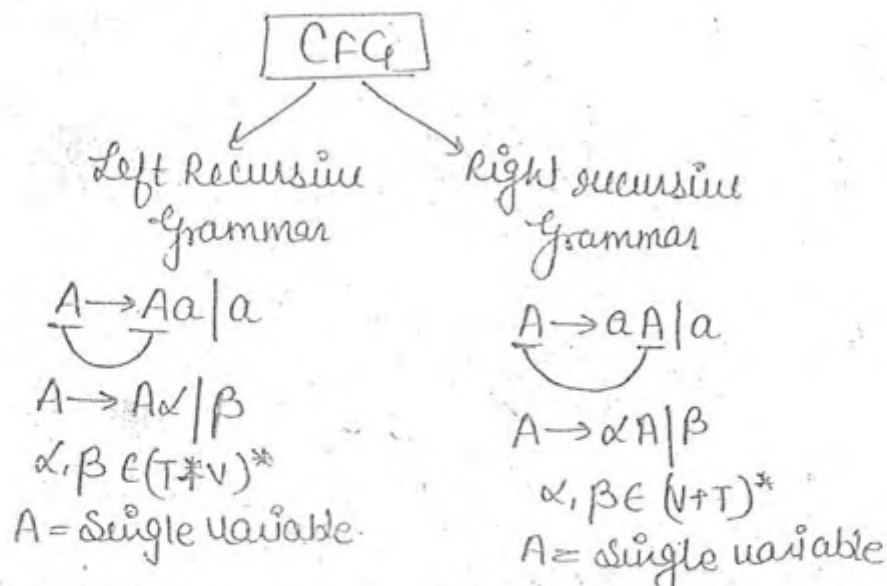 CFG
Left Recursive
Grammar
A → Aa | a
A → Aα | β
α, β ∈ (T+V)*
A = Single variable.
Right recursive
Grammar
A → a A | a
A → αA | β
α, β ∈ (V+T)*
A = single variable